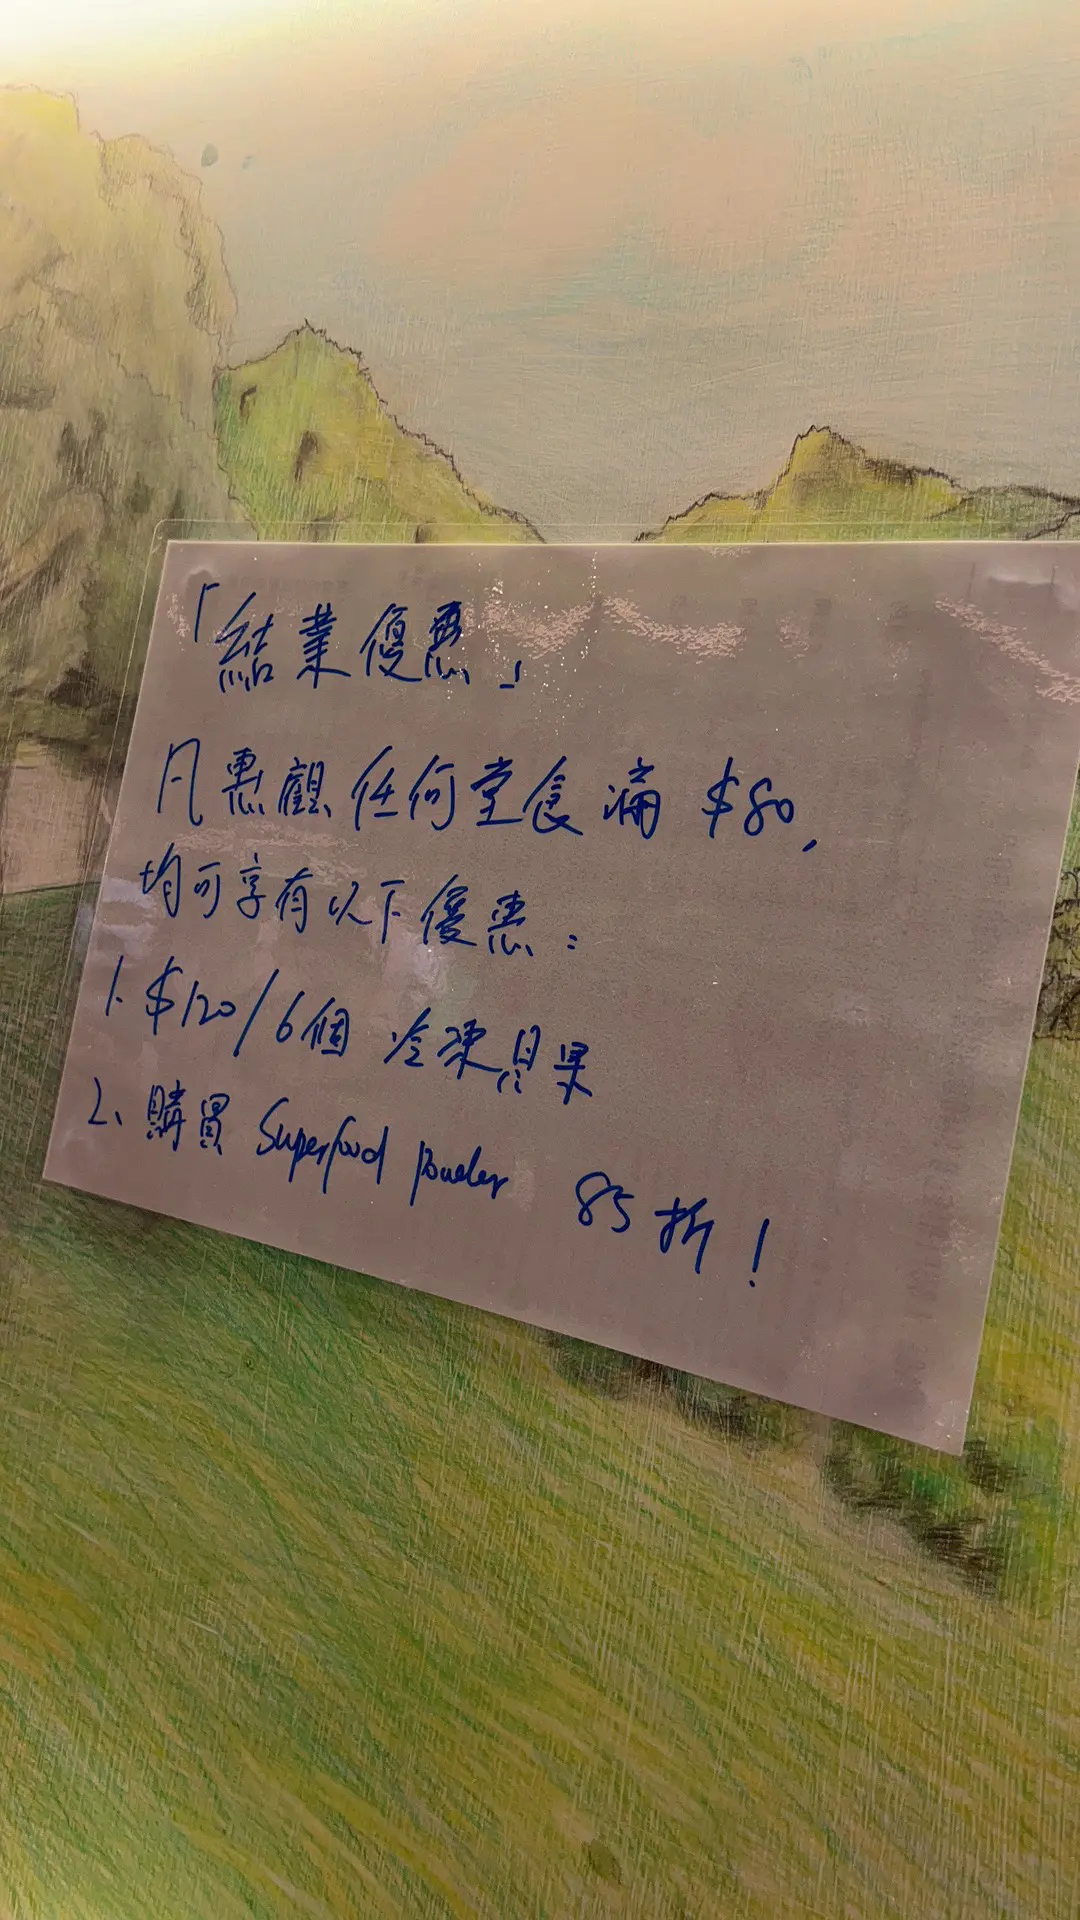 「結業優惠」
凡惠顧任何堂食滿 $80,
均可享有以下優惠:
1. $120/6個 冷凍貝果
2、購買 Superfood powder 85折!